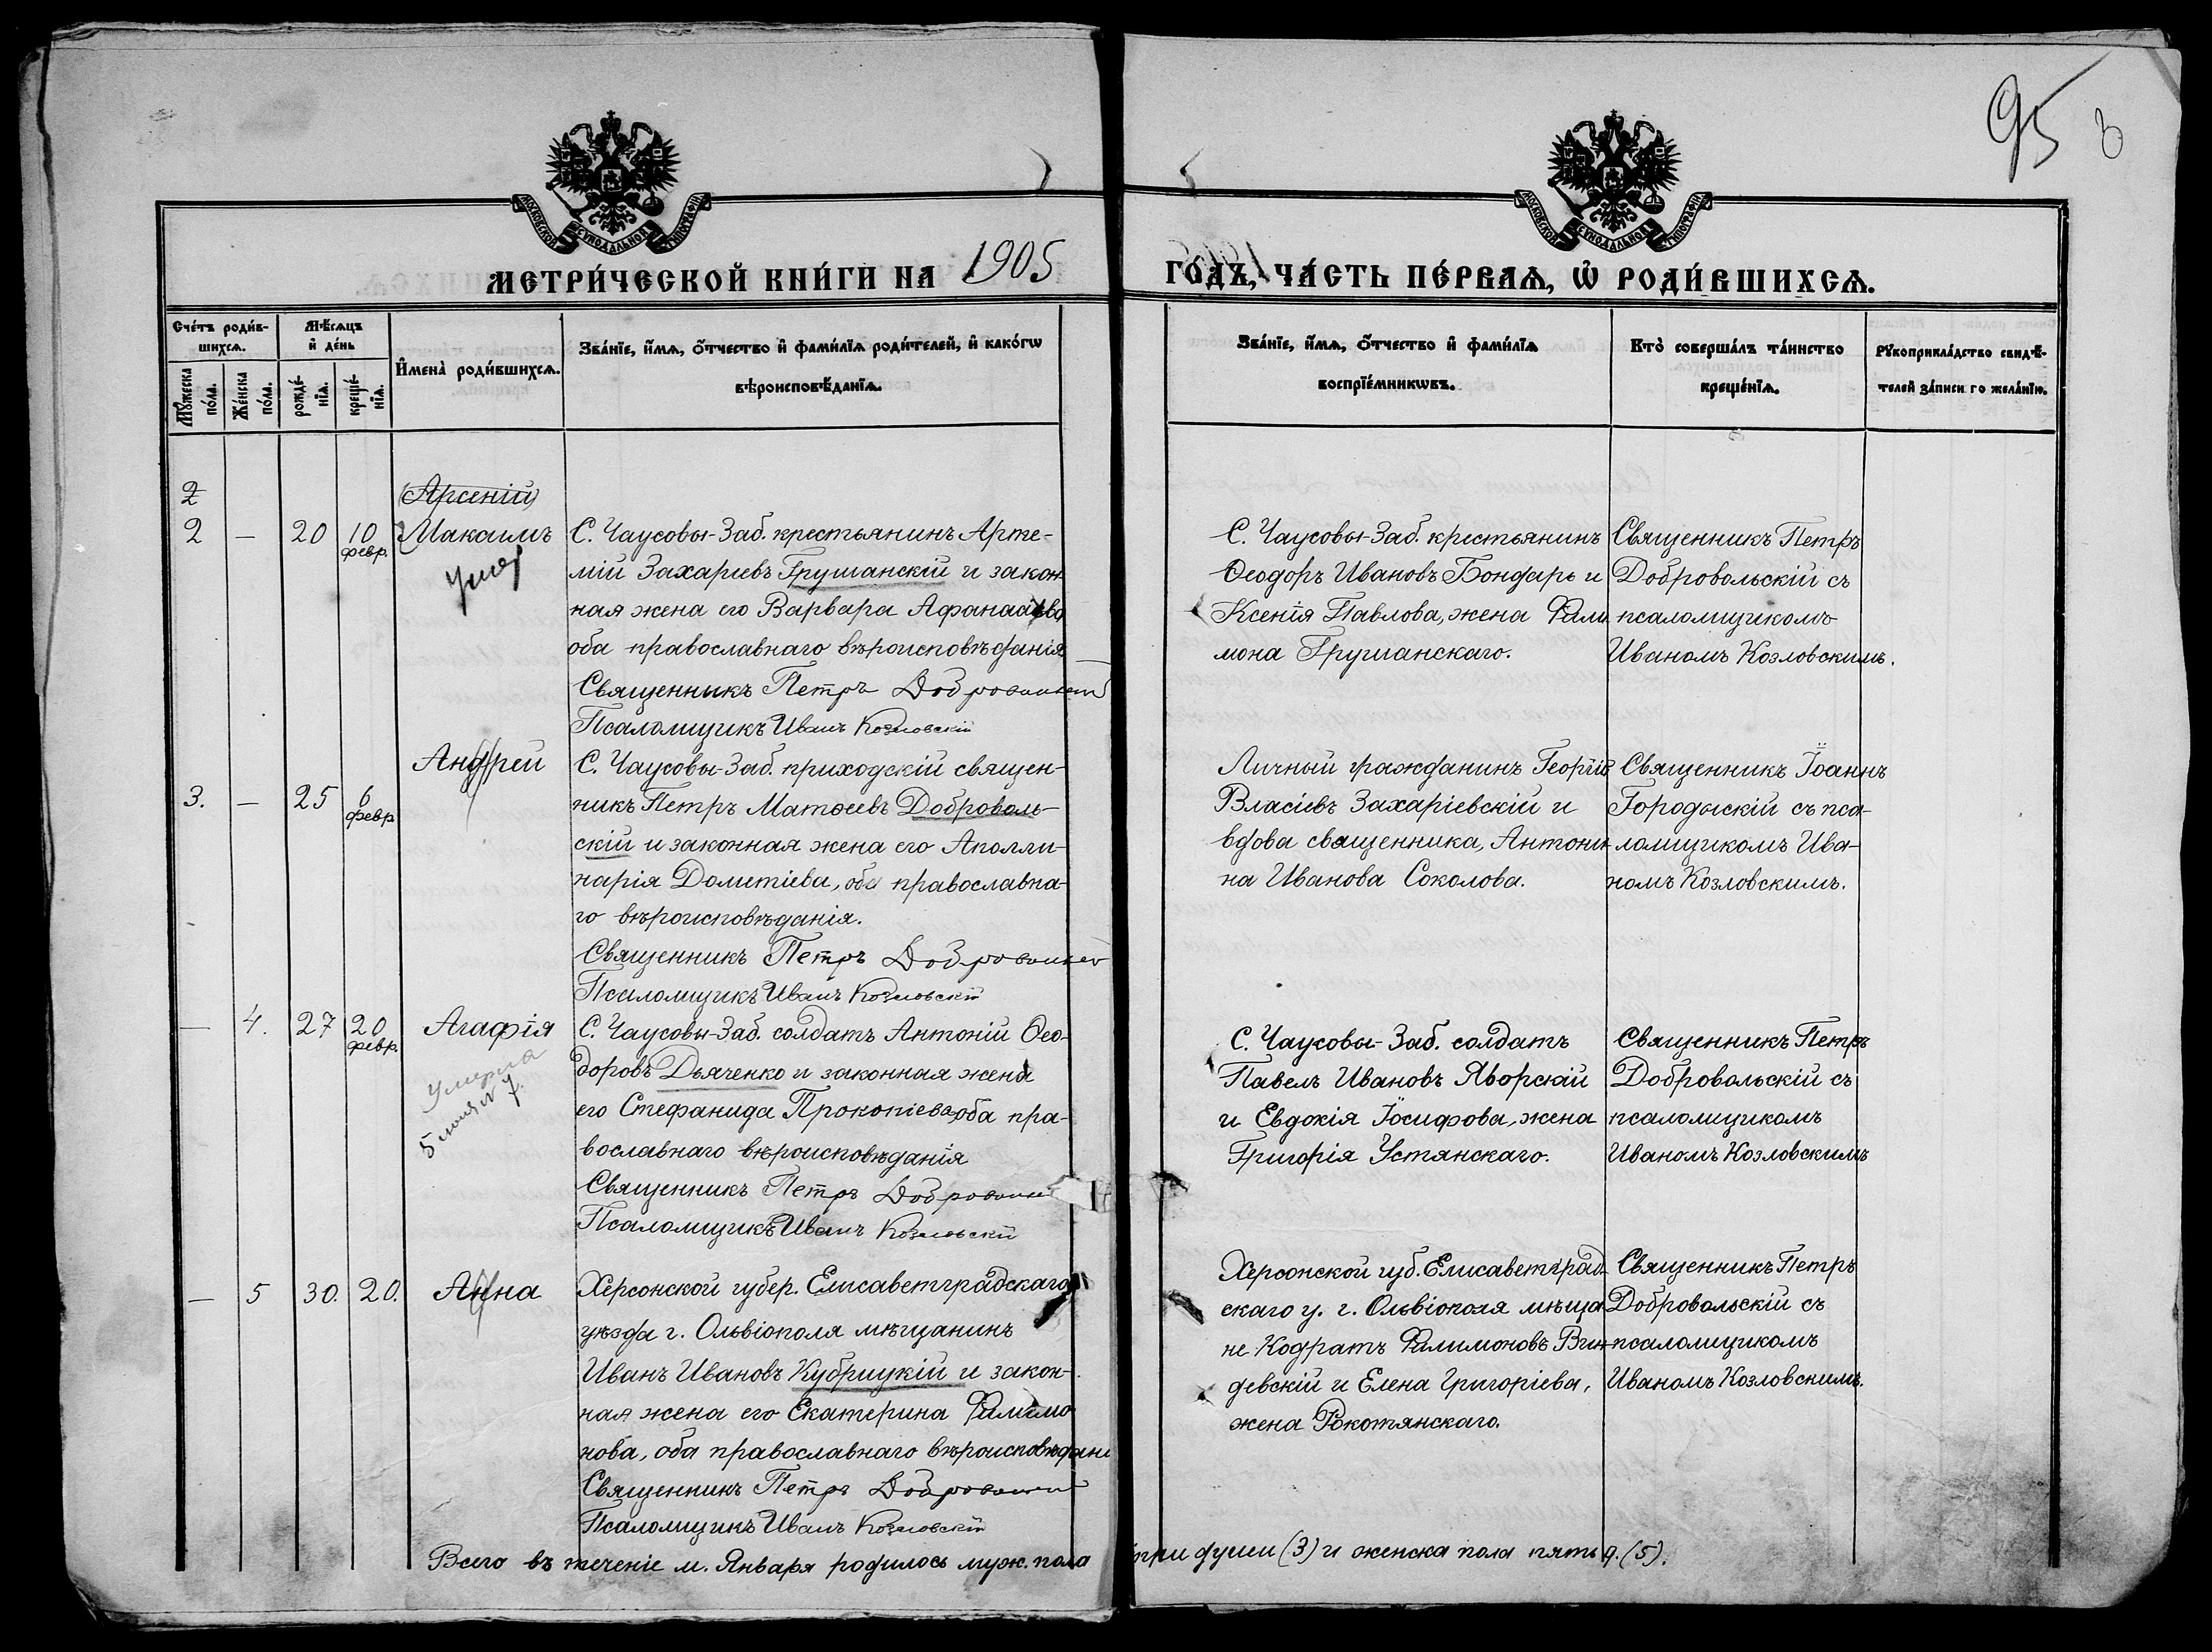 95
МОСКОВСКОЙ СУНОДАЛЬНОЙ ТИПОГРАФІИ
МОСКОВСКОЙ СУНОДАЛЬНОЙ ТИПОГРАФІИ
МЕТРИ́ЧЕСКОЙ КНИ́ГИ НА 1905
ГО́ДЪ, ЧА́СТЬ ПЕ́РВАѦ, Ѡ҆ РОДИ́ВШИХСѦ.
Сче́тъ роди́в-
шихсѧ.
Мꙋ́жеска по́ла.
Же́нска по́ла.
Мѣ́сѧцъ
и҆ де́нь
рожде́-
нїѧ.
креще́-
нїѧ.
И҆мена̀ роди́вшихсѧ.
Зва́нїе, и҆́мѧ, ѻ҆́тчество и҆ фами́лїѧ роди́телей, и҆ како́гѡ
вѣроисповѣ́данїѧ.
Зва́нїе, и҆́мѧ, ѻ҆́тчество и҆ фами́лїѧ
воспрїе́мникѡвъ.
Кто̀ соверша́лъ та́инство
креще́нїѧ.
Рꙋкоприкла́дство свидѣ́-
телей за́писи по жела́нїю.
2
(Арсеній)
2 — 20 10 февр.
Максимъ
Умер
С. Чаусовы-Заб. крестьянинъ Арте-
мій Захаріевъ Грушанскій и закон-
ная жена его Варвара Афанасіева
оба православнаго вѣроисповѣданія
Священникъ Петръ Добровольскій
Псаломщикъ Иванъ Козловскій
С. Чаусовы-Заб. крестьянинъ
Ѳеодоръ Ивановъ Бондарь и
Ксенія Павлова, жена Фили-
мона Грушанскаго.
Священникъ Петръ
Добровольскій съ
псаломщикомъ
Иваномъ Козловскимъ.
3. — 25 6 февр
Андрей
С. Чаусовы-Заб. приходскій священ-
никъ Петръ Матѳеевъ Доброволь-
скій и законная жена его Аполли-
нарія Дометіева, оба православна-
го вѣроисповѣданія.
Священникъ Петръ Добровольскій
Псаломщикъ Иванъ Козловскій
Личный гражданинъ Георгій
Власіевъ Захаріевскій и
вдова священника, Антони-
на Иванова Соколова.
Священникъ Іоаннъ
Городыскій съ пса-
ломщикомъ Ива-
номъ Козловскимъ.
— 4. 27 20 февр.
Агафія
Умерла
С. Чаусовы-Заб. солдатъ Антоній Ѳео-
доровъ Дьяченко и законная жена
его Стефанида Прокопіева, оба пра-
вославнаго вѣроисповѣданія
Священникъ Петръ Добровольскій
Псаломщикъ Иванъ Козловскій
С. Чаусовы-Заб. солдатъ
Павелъ Ивановъ Яворскій
и Евдокія Іосифова, жена
Григорія Устянскаго.
Священникъ Петръ
Добровольскій съ
псаломщикомъ
Иваномъ Козловскимъ
— 5 30. 20.
Анна
Херсонской губер. Елисаветградскаго
уѣзда г. Ольвіополя мѣщанинъ
Иванъ Ивановъ Кубрицкій и закон-
ная жена его Екатерина Филимо
нова, оба православнаго вѣроисповѣдані
Священникъ Петръ Добровольскій
Псаломщикъ Иванъ Козловскій
Херсонской губ. Елисаветград-
скаго у. г. Ольвіополя мѣща-
не Кодратъ Филимоновъ Вин-
девскій и Елена Григоріева,
жена Рокотянскаго.
Священникъ Петръ
Добровольскій съ
псаломщикомъ
Иваномъ Козловскимъ.
Всего въ теченіе м. Января родилось муж. пола три души (3) и женска пола пять д. (5).